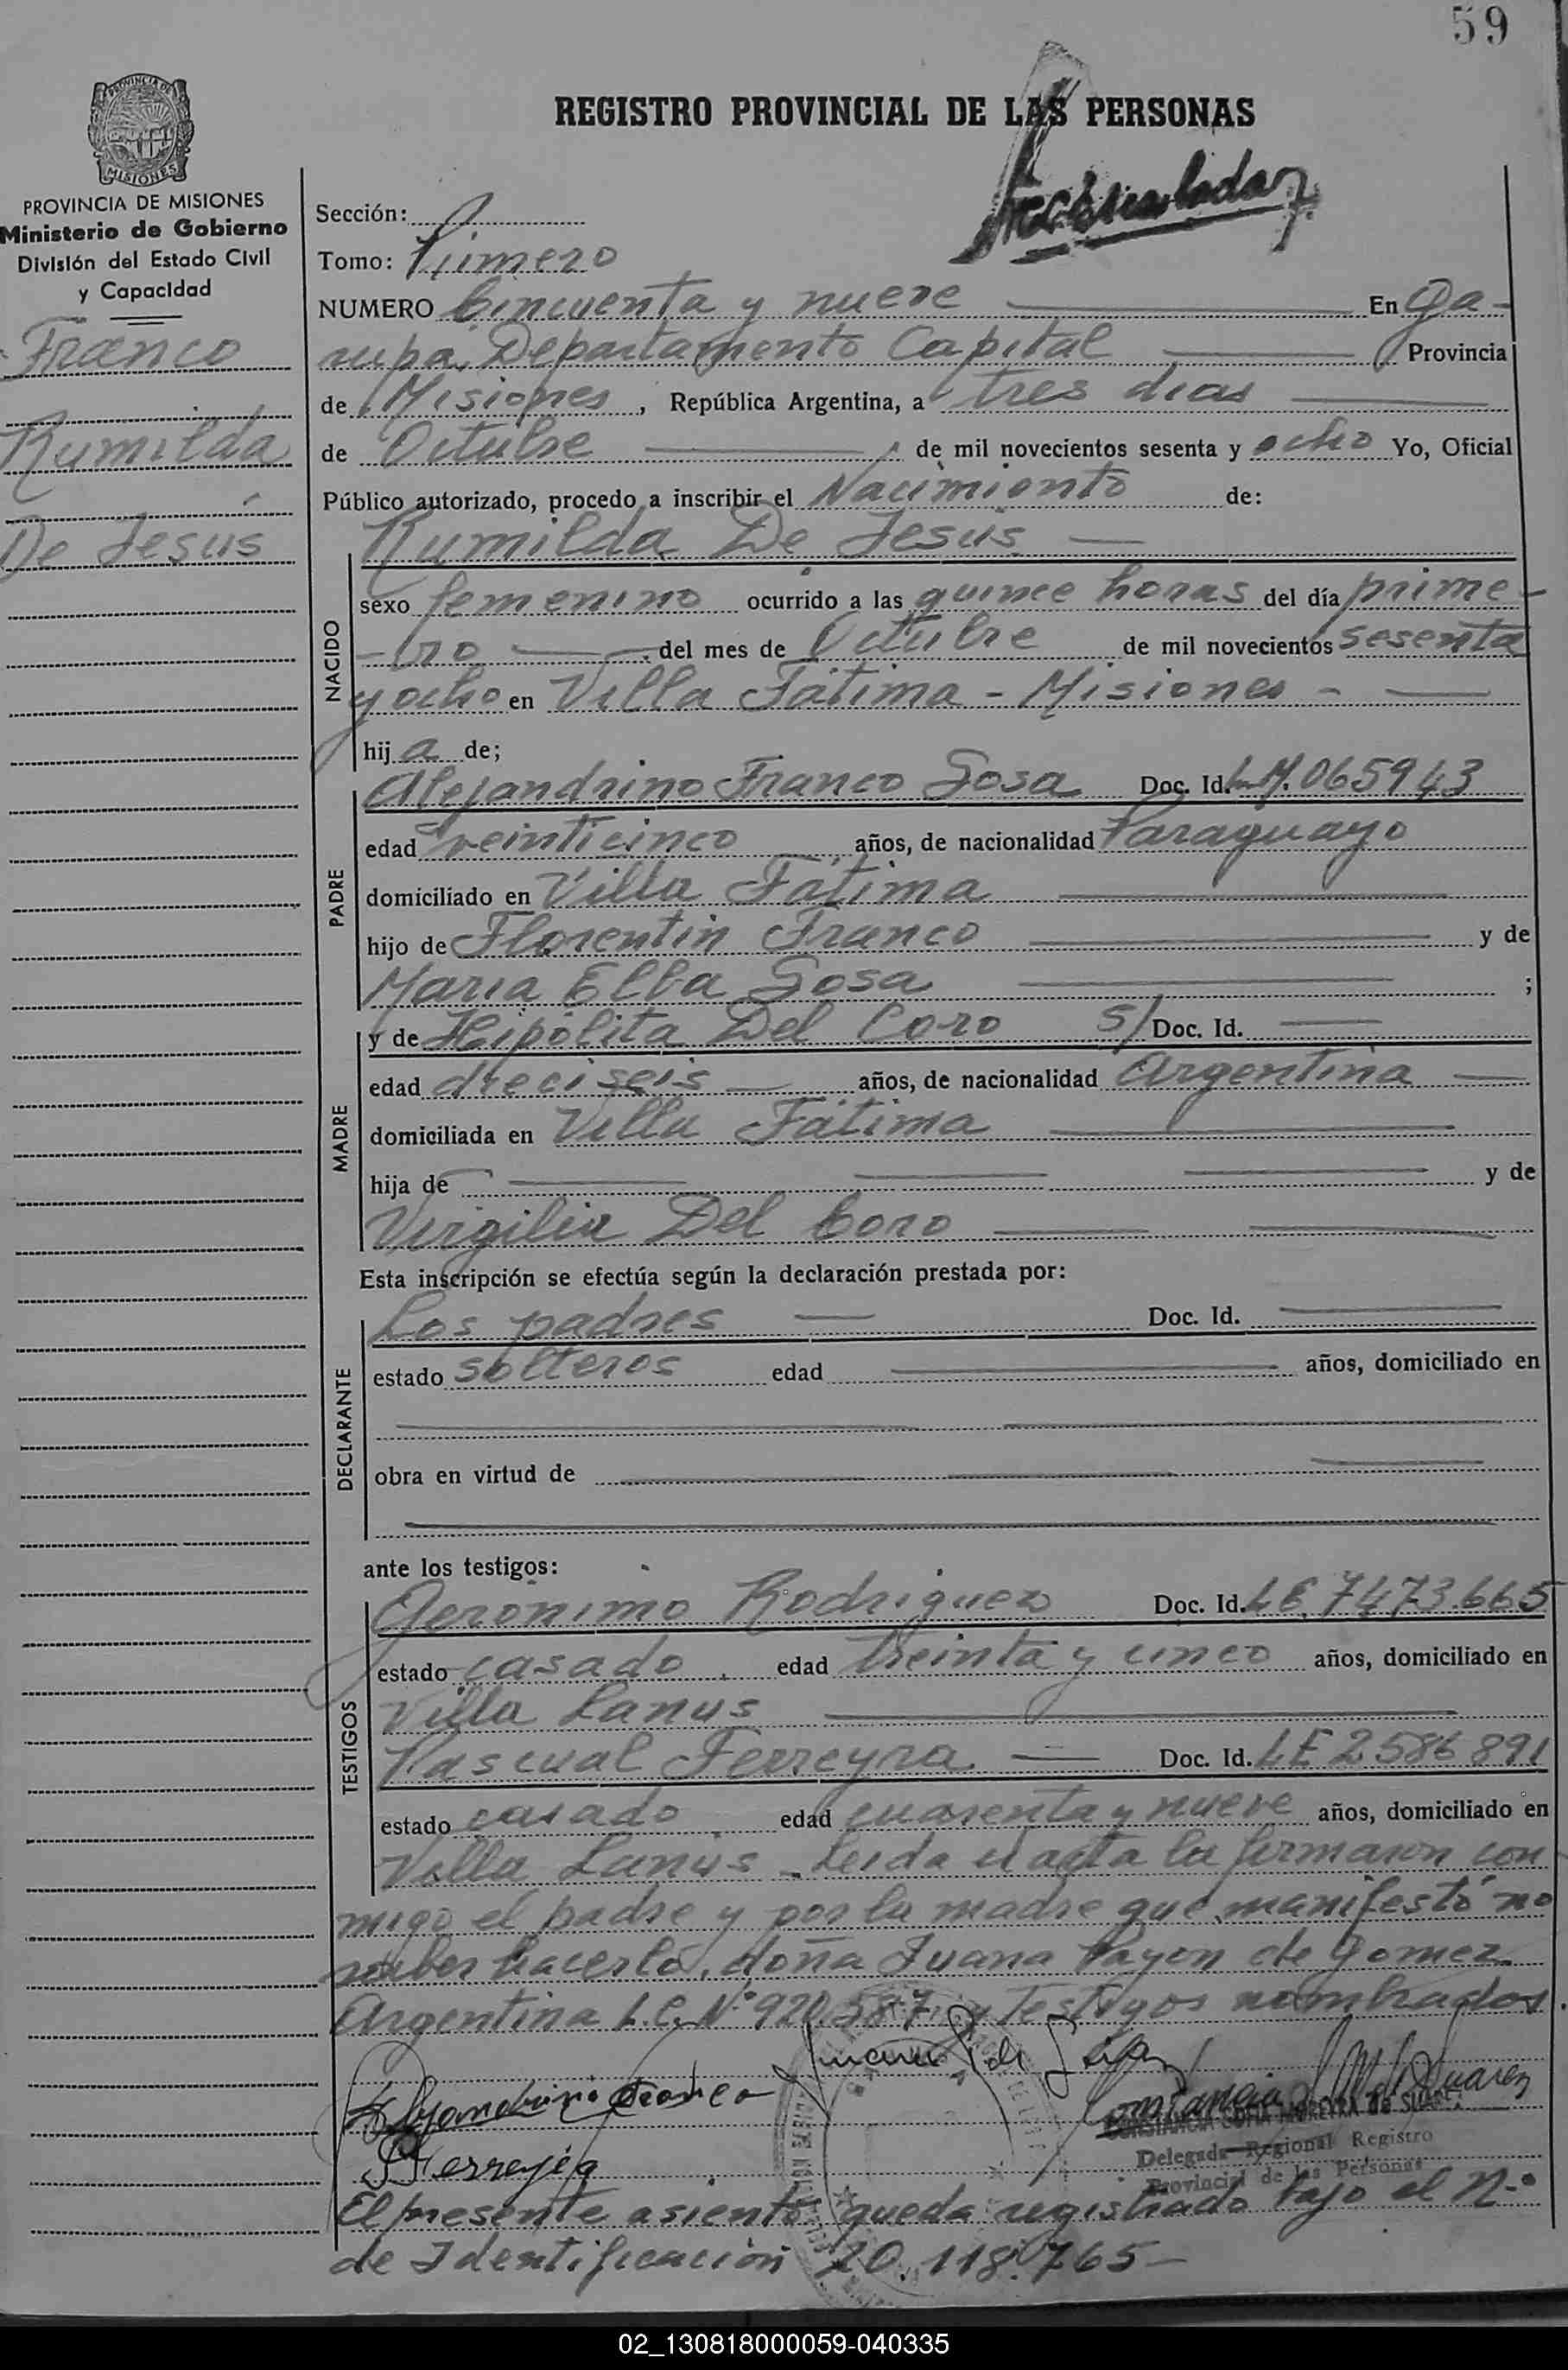 59
REGISTRO PROVINCIAL DE LAS PERSONAS
PROVINCIA DE MISIONES
Ministerio de Gobierno
División del Estado Civil
y Capacidad
Franco
Rumilda
De Jesús
Sección:
Tomo: Primero
NUMERO Cincuenta y nueve En Ga-
rupa, Departamento Capital Provincia
de Misiones, República Argentina, a tres dias
de Octubre de mil novecientos sesenta y ocho Yo, Oficial
Público autorizado, procedo a inscribir el Nacimiento de:
Rumilda De Jesús
NACIDO
sexo femenino ocurrido a las quince horas del día prime-
-ro del mes de Octubre de mil novecientos sesenta
y ocho en Villa Fátima - Misiones -
hij a de;
PADRE
Alejandrino Franco Sosa Doc. Id. 065943
edad veinticinco años, de nacionalidad Paraguayo
domiciliado en Villa Fátima
hijo de Florentin Franco y de
Maria Elba Sosa ;
MADRE
y de Hipólita Del Coro S/ Doc. Id.
edad dieciseis años, de nacionalidad Argentina
domiciliada en Villa Fátima
hija de y de
Virgilia Del Coro
Esta inscripción se efectúa según la declaración prestada por:
DECLARANTE
Los padres Doc. Id.
estado solteros edad años, domiciliado en
obra en virtud de
ante los testigos:
TESTIGOS
Gerónimo Rodriguez Doc. Id. LE 7473.665
estado casado edad treinta y cinco años, domiciliado en
Villa Lanus
Pascual Ferreyra Doc. Id. LE 2586891
estado casado edad cuarenta y nueve años, domiciliado en
Villa Lanús - Leida el acta la firmaron con-
migo el padre y por la madre que manifestó no
saber hacerlo, doña Juana Payon de Gomez
Argentina L.C. Nº 920.587, y Testigos nombrados.
Alejandrino Franco
Ferreyra
CONSTANCIA SOFIA MOREYRA de SUAREZ
Delegada Regional Registro
Provincial de las Personas
El presente asiento queda registrado bajo el Nº
de Identificación 20.118.765-
02_130818000059-040335